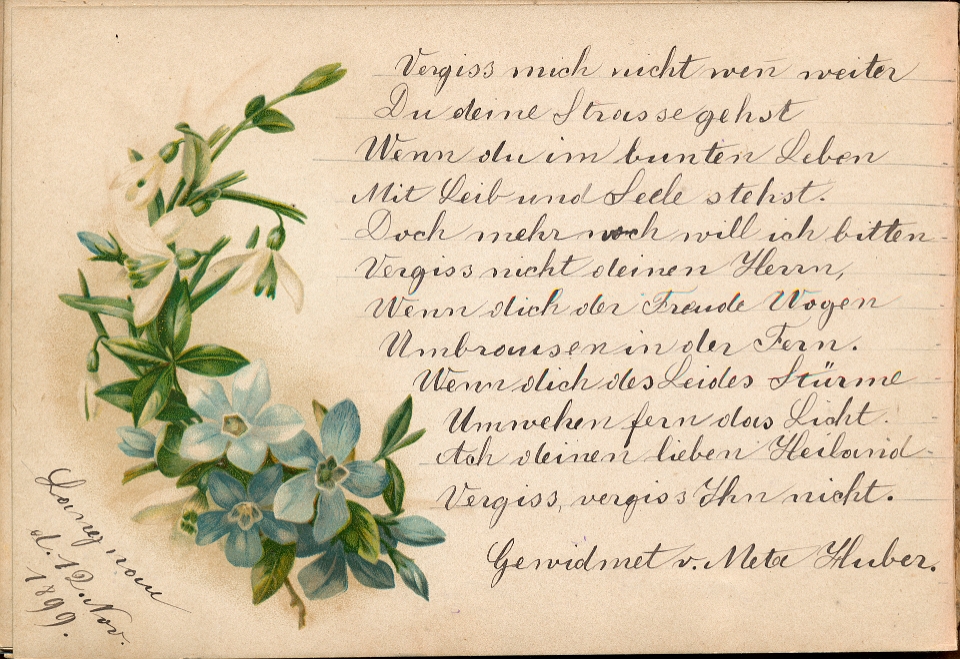 Vergiss mich nicht weñ weiter
Du deine Strasse gehst
Wenn du im bunten Leben
Mit Leib und Seele stehst.
Doch mehr noch will ich bitten
Vergiss nicht deinen Herrn,
Wenn dich der Freude Wogen
Umbrausen in der Fern.
Wenn dich des Leides Stürme
Umwehen fern das Licht.
Ach deinen lieben Heiland
Vergiss, vergiss Ihn nicht.
Gewidmet v. Meta Huber.
Langnau
d. 12. Nov.
1899.